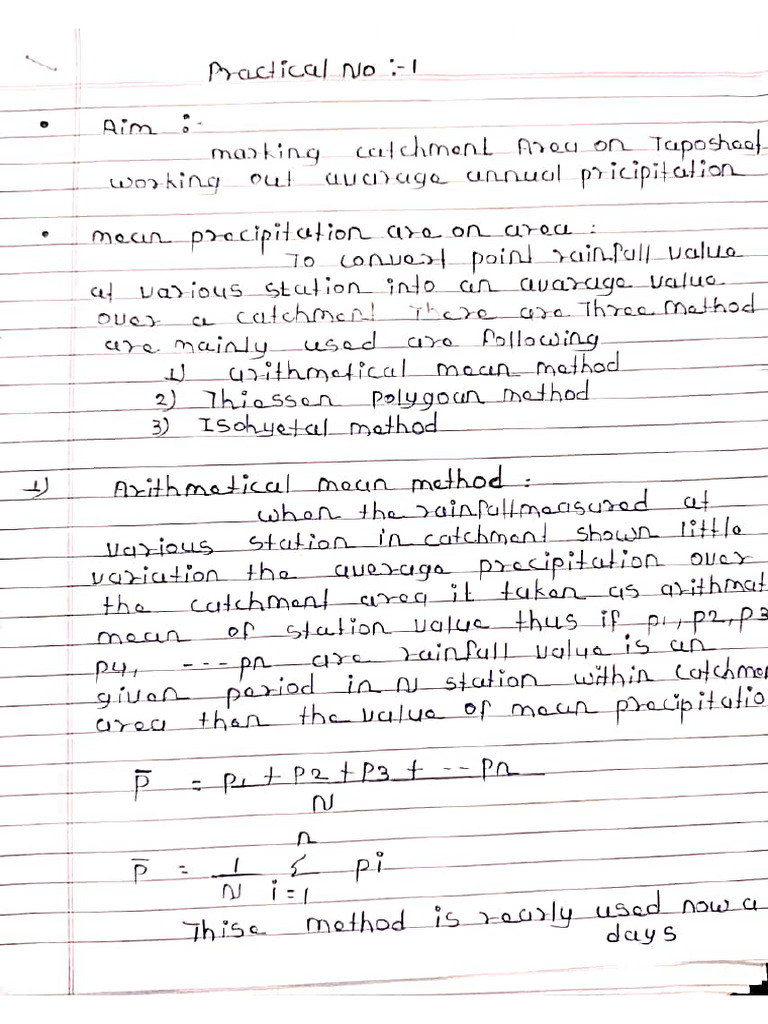 Practical No :- 1
• Aim :-
marking catchment Area on Taposheet
working out avarage annual pricipitation
• mean precipitation are on area :
To convert point rainfall value
at various station into an avarage value
over a catchment There are Three method
are mainly used are following
1) arithmetical mean method
2) Thiessen polygoan method
3) Isohyetal method
1) Arithmetical mean method :
when the rainfall measured at
various station in catchment shown little
variation the average precipitation over
the catchment area it taken as arithmat
mean of station value thus if p1, p2, p3
p4, --- pn are rainfall value is an
given period in N station within catchmen
area than the value of mean precipitatio
P̄ = p1 + p2 + p3 + -- pn
N
n
P̄ = 1/N Σ pi
i=1
Thise method is rearly used now a
days